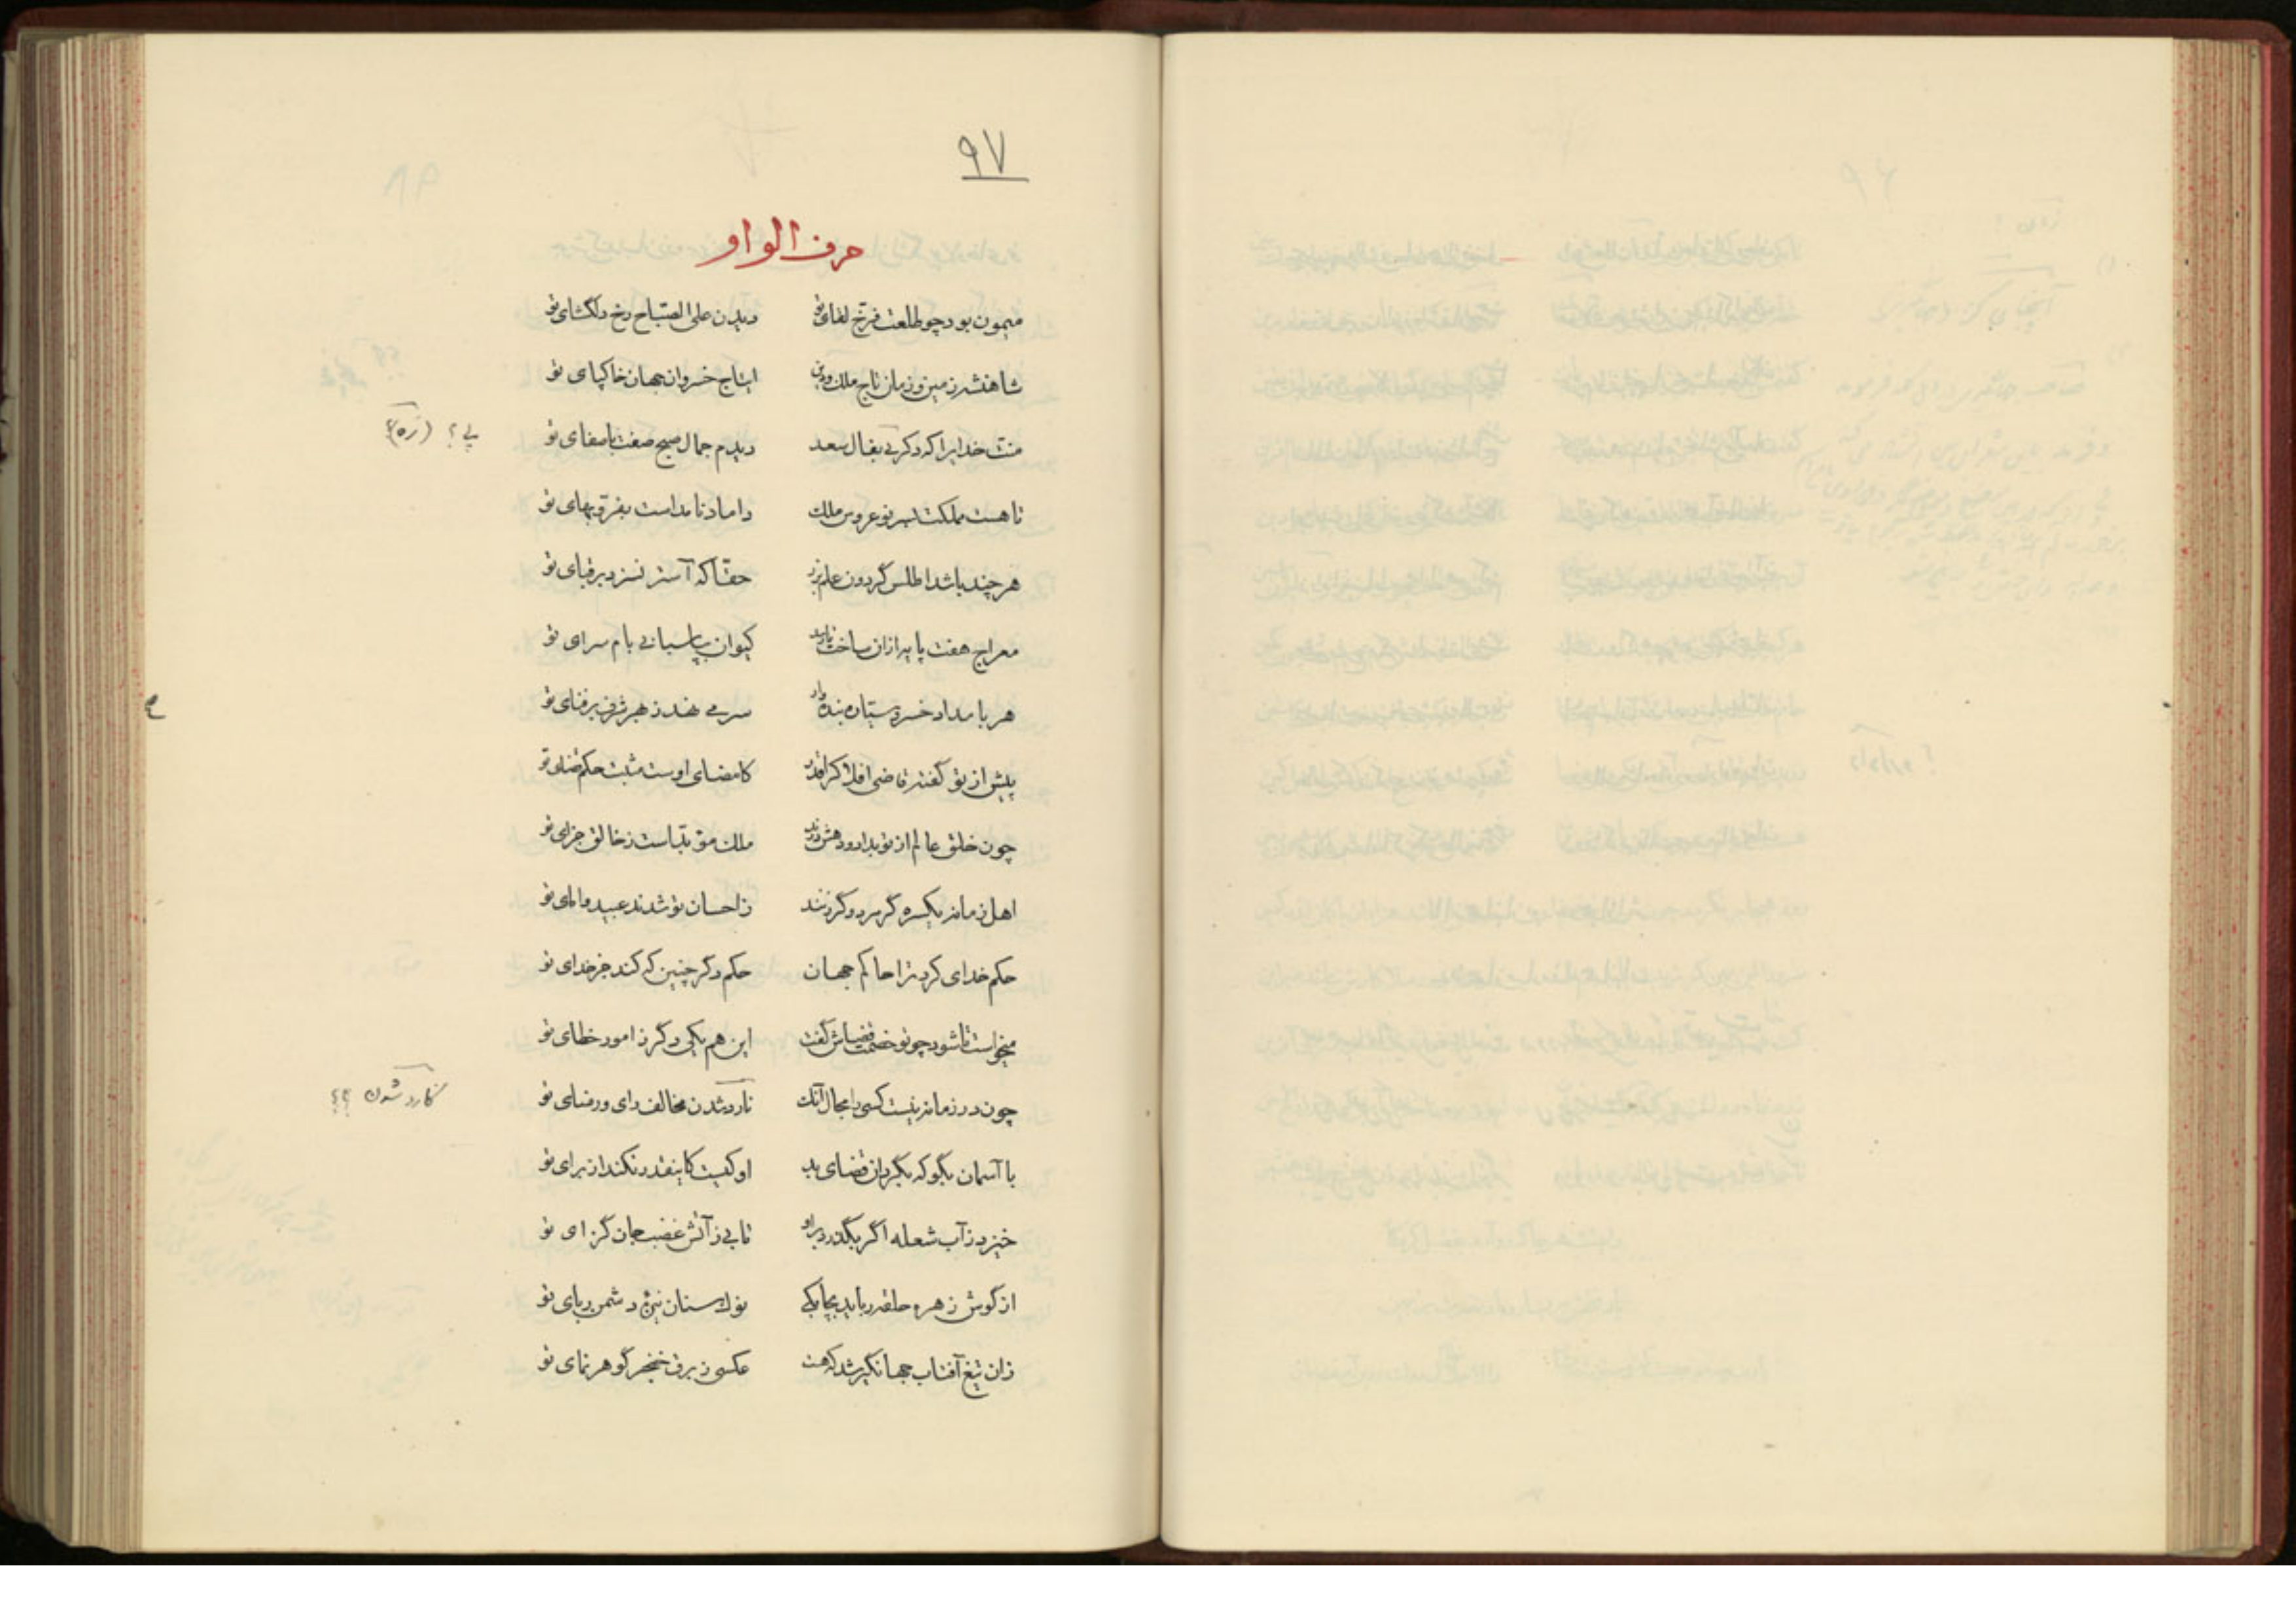 ۹۷
حرف الواو
میمون بود چو طلعت فرخ لقای تو دیدن علی الصباح رخ دلگشای تو
شاهنشه زمین و زمان تاج ملک و دین ایتاج خسروان جهان خاکپای تو
منت خدایرا که دکر بی بفال سعد دیدم جمال صبح صفت باصفای تو
پی؟ (زه)؟
تا هست مملکت بسر نو عروس ملک داماد نامدست بفر و بهای تو
هر چند باشد اطلس گردون علم بزر حقا که آستر نسزد بر قبای تو
معراج هفت پایه ازان ساخت تا رسد کیوان بپاسبانی بام سرای تو
هر بامداد خسرو سیاره بنده وار سر می نهد ز بهر شرف بر فنای تو
پیش از تو گفته قاضی افلاک را قدر کامضای اوست مثبت حکم قضای تو
چون خلق عالم از تو بداد و دهش درند ملک مؤبد است ز خالق جزای تو
اهل زمانه یکسره گر مرد و گر زنند ز احسان تو شدند عبید و امای تو
حکم خدای کرد ترا حاکم جهان حکم دکر چنین که کند جز خدای تو
میخواست تا شود چو تو خصمت قضاش گفت این هم یکی دگر ز امور خطای تو
چون در زمانه نیست کسی را مجال آنک تا رد شدن مخالف رای و رضای تو
کارد شدن ؟؟
با آسمان بگو که بگردان قضای بد او کیست کاینقدر نکند از برای تو
خیزد ز آب شعله اگر بگذرد بر او تابی ز آتش غضب جان گزای تو
از گوش زهره حلقه رباید بچابکی نوک سنان نیزه دشمن ربای تو
زان تیغ آفتاب جهانگیر شد که هست عکسی ز برق خنجر گوهر نمای تو